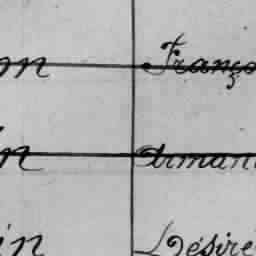 on Franço
in Arman
in Désiré